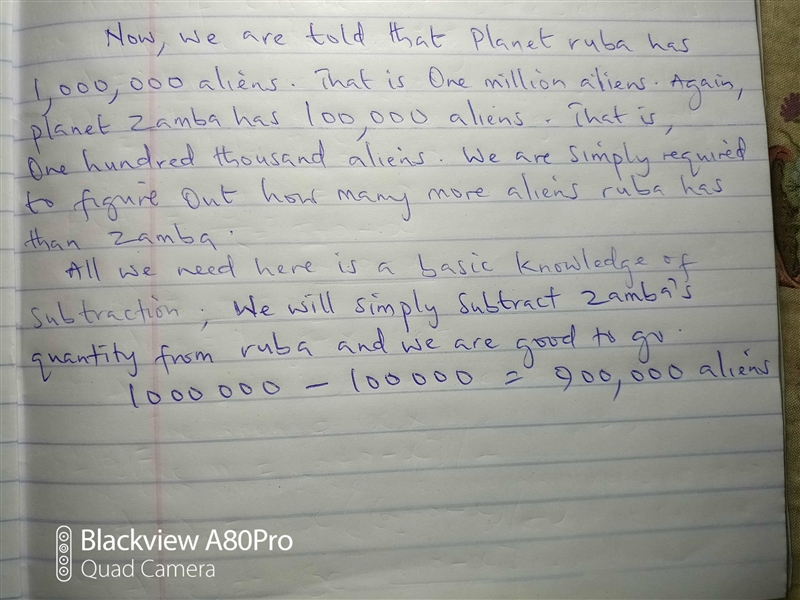 Now, we are told that Planet ruba has
1,000,000 aliens. That is One million aliens. Again,
planet Zamba has 100,000 aliens. That is,
One hundred thousand aliens. We are simply required
to figure out how many more aliens ruba has
than Zamba.
All we need here is a basic knowledge of
Subtraction; We will simply Subtract Zamba's
quantity from ruba and we are good to go.
1000000 - 100000 = 900,000 aliens
Blackview A80Pro
Quad Camera